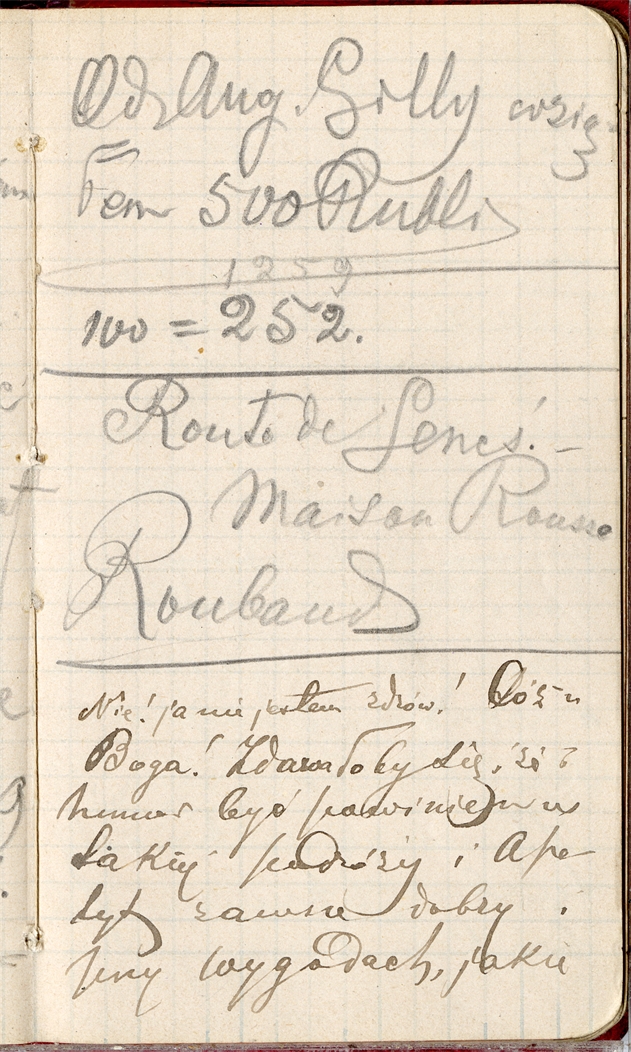 Od Aug. Gilly wzią-
łem 500 Rubli
1259
100 = 252.
Route de Gênes! –
Maison Rousse
Roubaud
Nie! ja nie jestem zdrów! Cóż u
Boga! Zdawałoby się, że i
humor być powinien w
takiej podróży i Ape-
tyt zawsze dobry i
przy wygodach, jakie